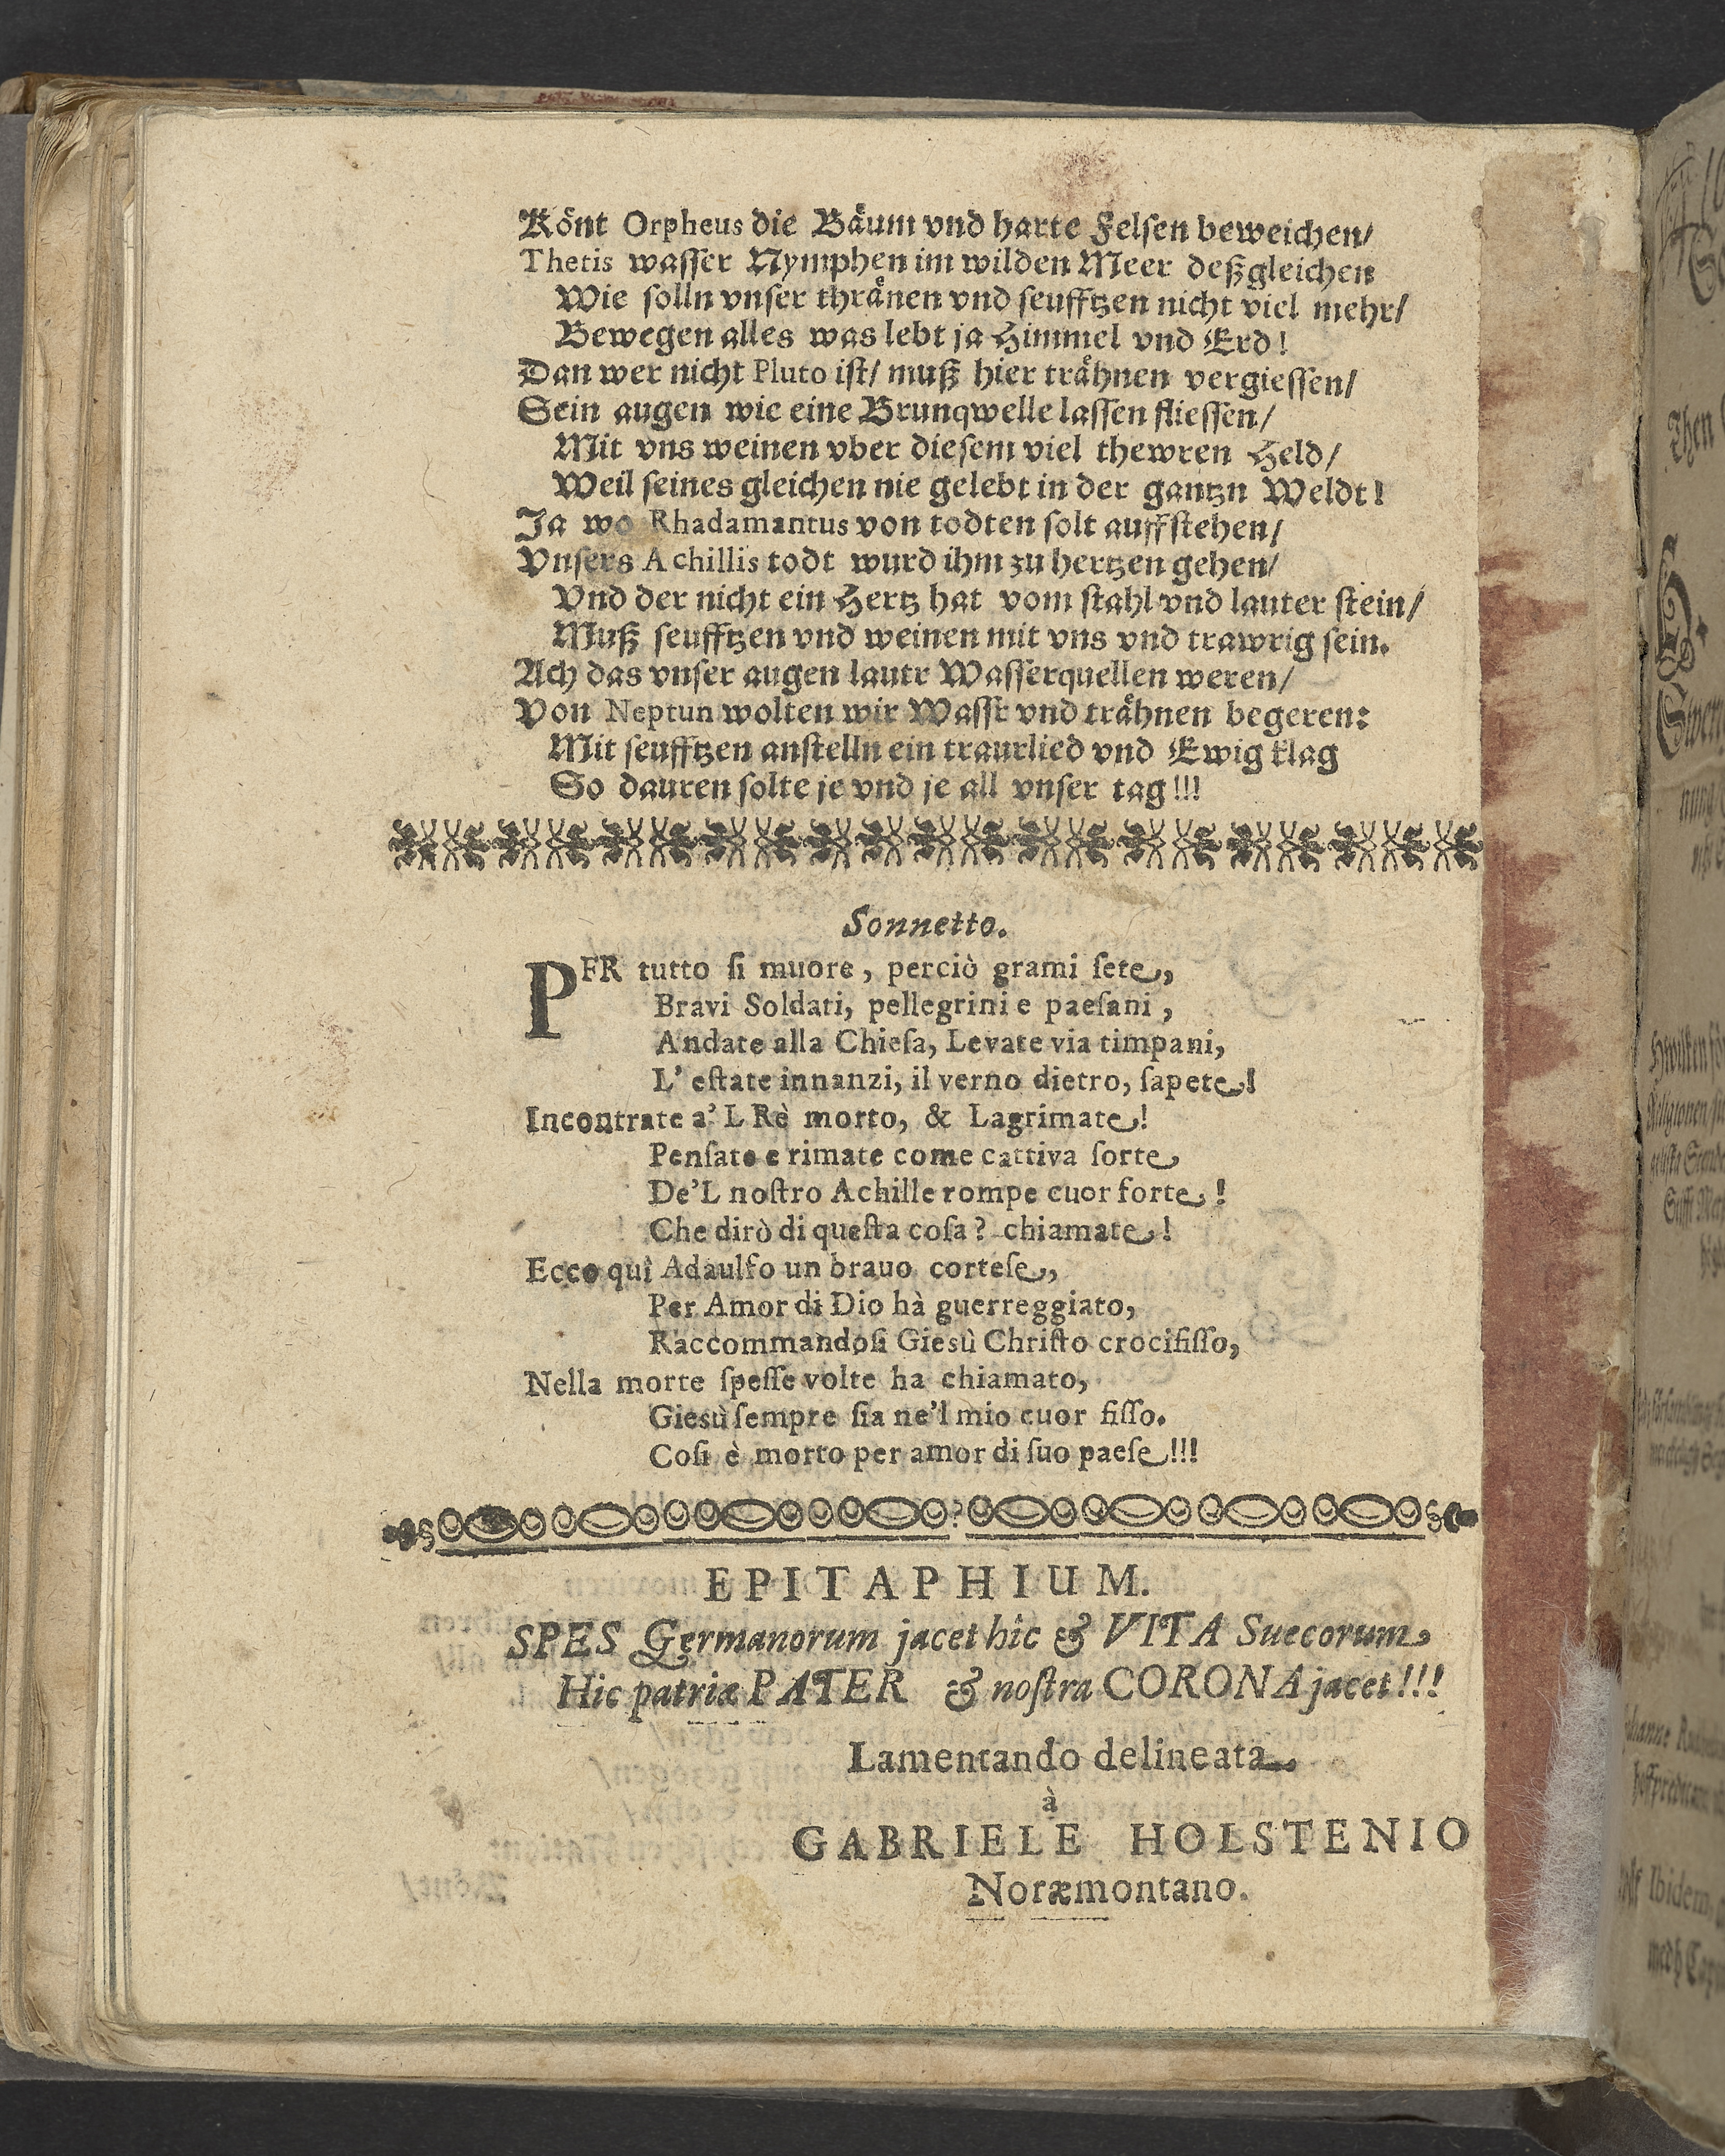 Könt Orpheus die Bäum vnd harte Felsen beweichen/
Thetis wasser Nymphen im wilden Meer deßgleichen
Wie solln vnser thränen vnd seufftzen nicht viel mehr/
Bewegen alles was lebt ja Himmel vnd Erd!
Dan wer nicht Pluto ist/ muß hier trähnen vergiessen/
Sein augen wie eine Brunqwelle lassen fliessen/
Mit vns weinen vber diesem viel thewren Held/
Weil seines gleichen nie gelebt in der gantzn Weldt!
Ja wo Rhadamantus von todten solt auffstehen/
Vnsers Achillis todt wurd ihm zu hertzen gehen/
Vnd der nicht ein Hertz hat vom stahl vnd lauter stein/
Muß seufftzen vnd weinen mit vns vnd trawrig sein.
Ach das vnser augen lautr Wasserquellen weren/
Von Neptun wolten wir Wassr vnd trähnen begeren:
Mit seufftzen anstelln ein traurlied vnd Ewig klag
So dauren solte je vnd je all vnser tag!!!
Sonnetto.
PER tutto si muore, perciò grami sete,
Bravi Soldati, pellegrini e paesani,
Andate alla Chiesa, Levate via timpani,
L' estate innanzi, il verno dietro, sapete!
Incontrate a'L Rè morto, & Lagrimate!
Pensate e rimate come cattiva sorte
De'L nostro Achille rompe cuor forte!
Che dirò di questa cosa? chiamate!
Ecco quì Adaulfo un brauo cortese,
Per Amor di Dio hà guerreggiato,
Raccommandosi Giesù Christo crocifisso,
Nella morte spesse volte ha chiamato,
Giesù sempre sia ne'l mio cuor fisso.
Cosi è morto per amor di suo paese!!!
EPITAPHIUM.
SPES Germanorum jacet hic & VITA Suecorum
Hic patriæ PATER & nostra CORONA jacet!!!
Lamentando delineata
à
GABRIELE HOLSTENIO
Noræmontano.